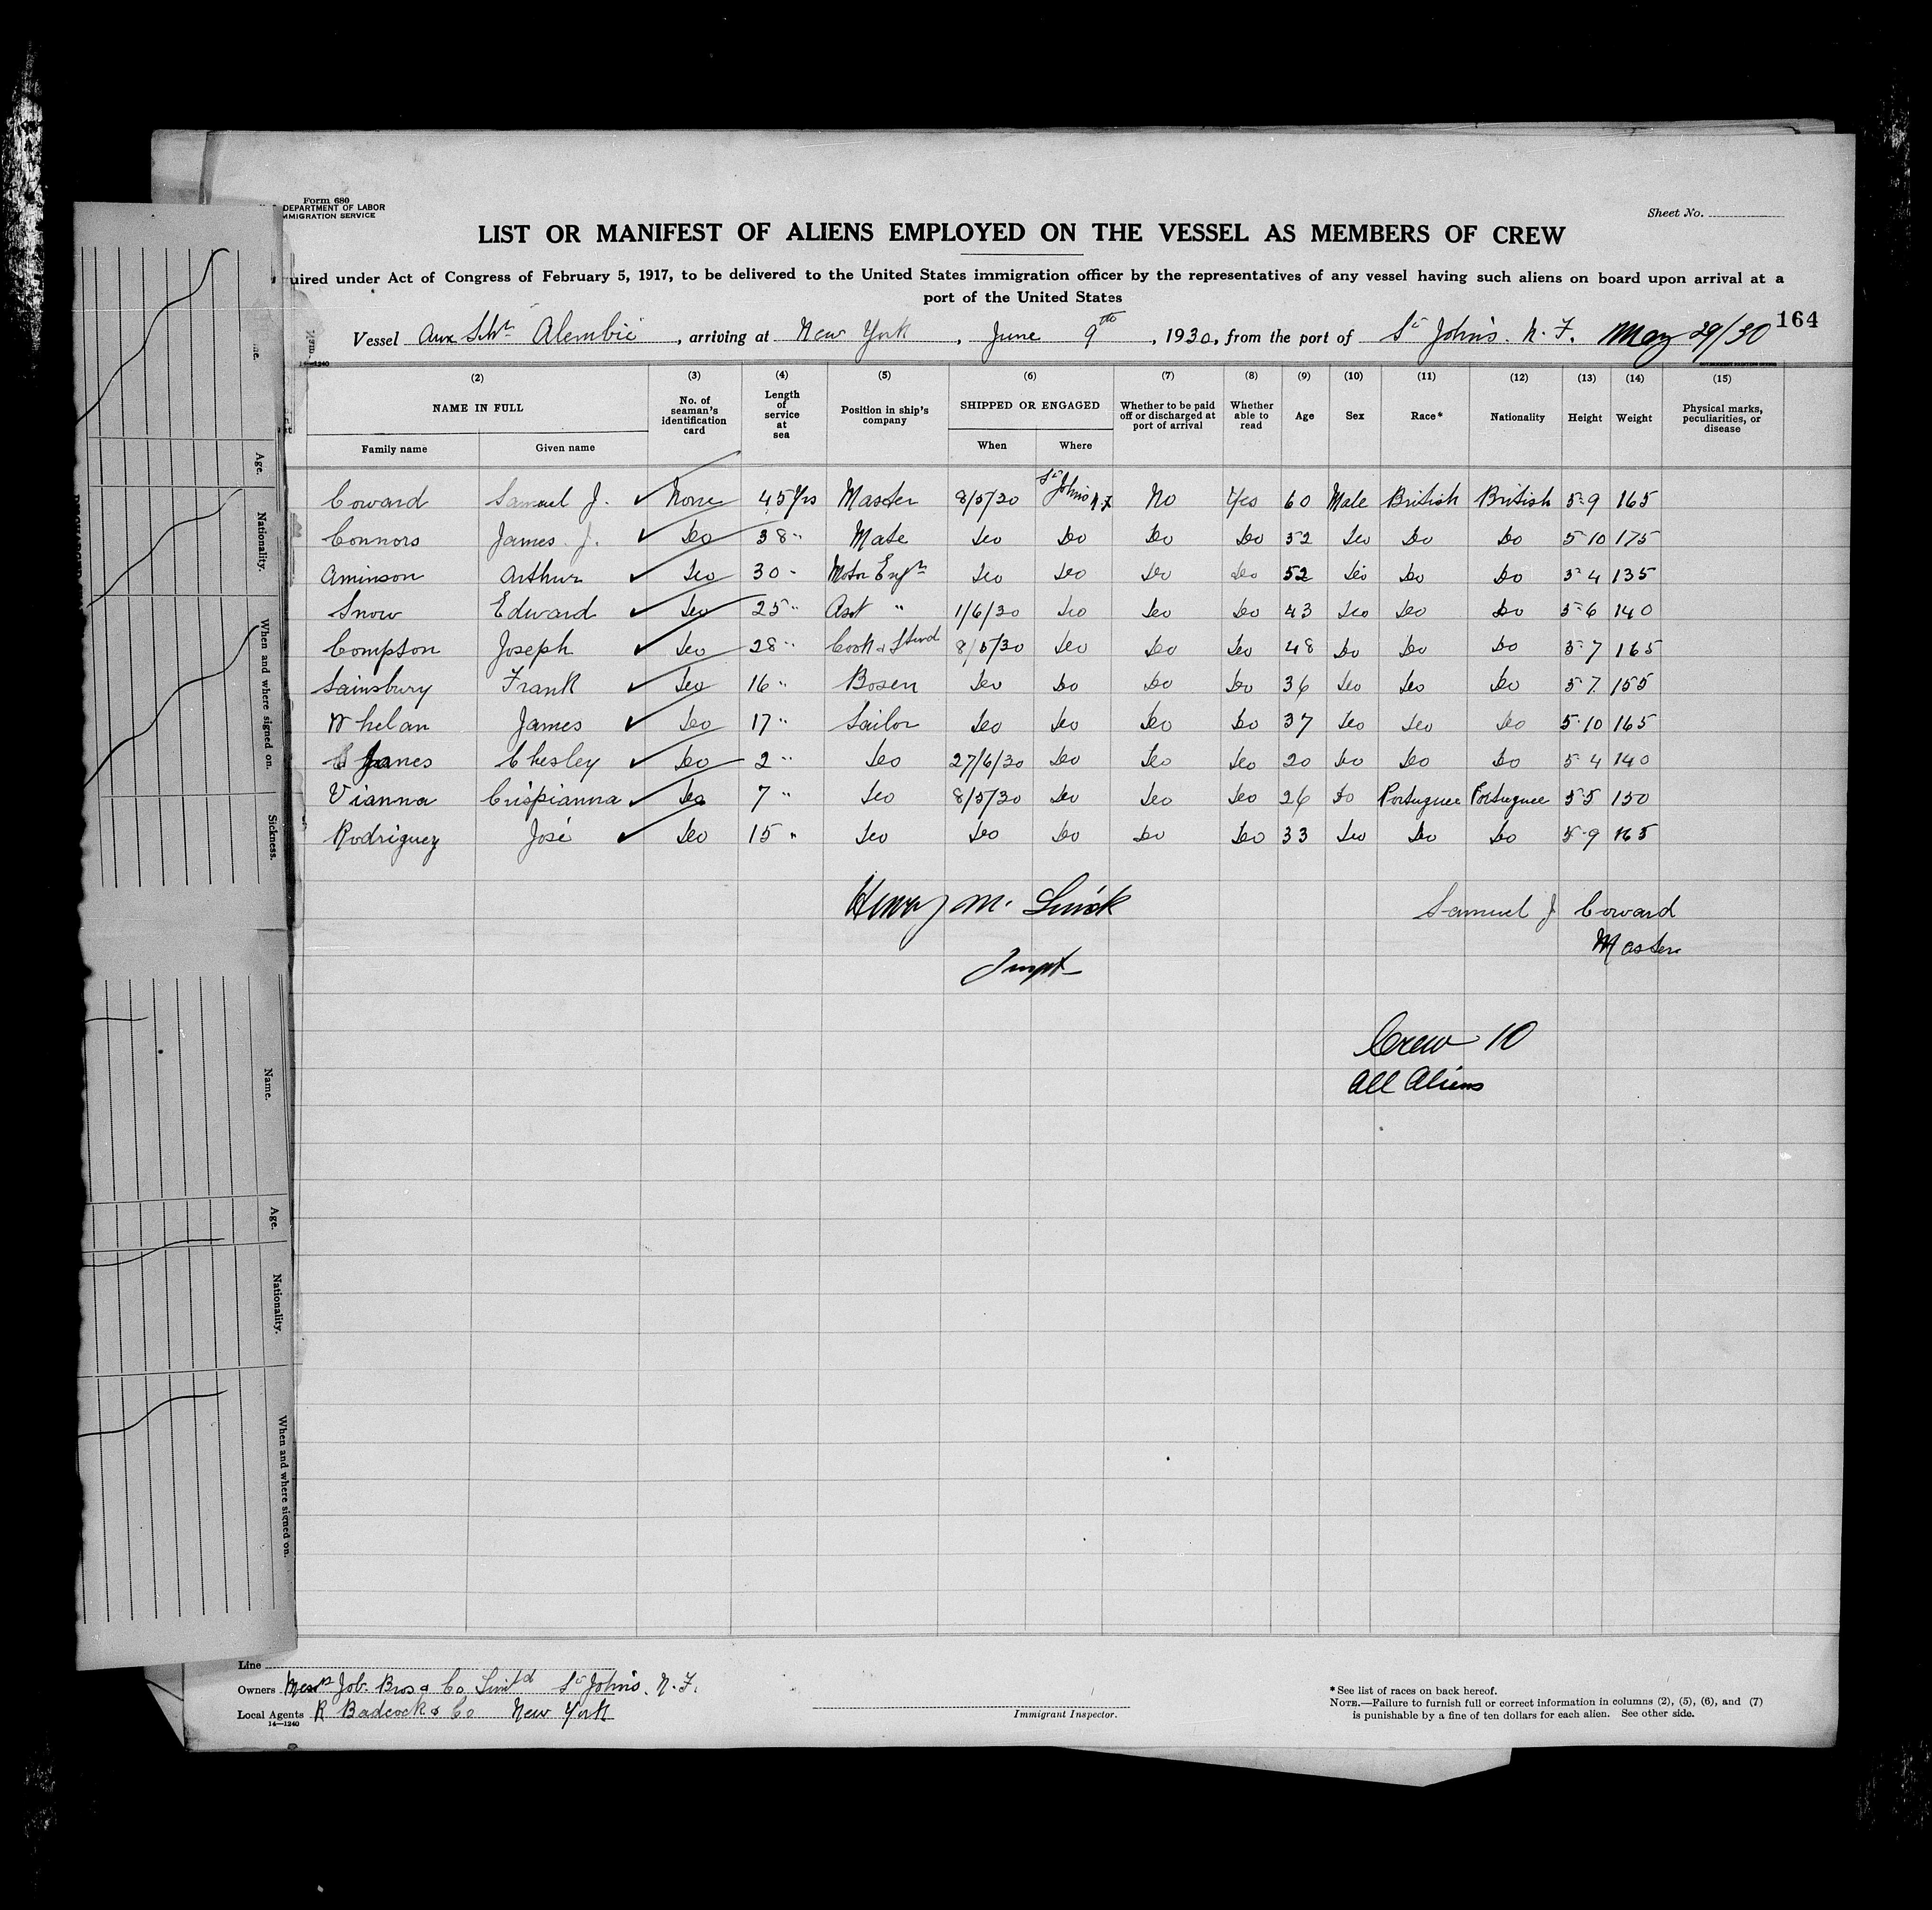 Form 680
DEPARTMENT OF LABOR
MMIGRATION SERVICE
Sheet No.
LIST OR MANIFEST OF ALIENS EMPLOYED ON THE VESSEL AS MEMBERS OF CREW
uired under Act of Congress of February 5, 1917, to be delivered to the United States immigration officer by the representatives of any vessel having such aliens on board upon arrival at a
port of the United States
Vessel Aux Schr Alembic, arriving at New York, June 9th, 1930, from the port of St Johns. N. F. May 29/30 164
(2) (3) (4) (5) (6) (7) (8) (9) (10) (11) (12) (13) (14) (15)
NAME IN FULL No. of seaman's identification card Length of service at sea Position in ship's company SHIPPED OR ENGAGED Whether to be paid off or discharged at port of arrival Whether able to read Age Sex Race* Nationality Height Weight Physical marks, peculiarities, or disease
Family name Given name When Where
Coward Samuel J. ✓ None 45 Yrs Master 8/5/30 St Johns N.F No Yes 60 Male British British 5-9 165
Connors James J. ✓ Do 38 " Mate Do Do Do Do 52 Do Do Do 5-10 175
Aminson Arthur ✓ Do 30 " Motor Engr Do Do Do Do 52 Do Do Do 5-4 135
Snow Edward ✓ Do 25 " Asst " 1/6/30 Do Do Do 43 Do Do Do 5-6 140
Compton Joseph ✓ Do 28 " Cook & Stwd 8/5/30 Do Do Do 48 Do Do Do 5-7 165
Sainsbury Frank ✓ Do 16 " Bosen Do Do Do Do 36 Do Do Do 5-7 155
Whelan James ✓ Do 17 " Sailor Do Do Do Do 37 Do Do Do 5-10 165
Janes Chesley ✓ Do 2 " Do 27/6/30 Do Do Do 20 Do Do Do 5-4 140
Vianna Crispianna ✓ Do 7 " Do 8/5/30 Do Do Do 26 Do Portuguee Portuguee 5-5 150
Rodriguez José ✓ Do 15 " Do Do Do Do Do 33 Do Do Do 5-9 165
Henry M.
Samuel J Coward
Master
Crew 10
All Aliens
Age.
Nationality.
When and where signed on.
Sickness.
Name.
Age.
Nationality.
When and where signed on.
Line
Owners Messrs Job. Bros & Co Limitd St Johns. N. F.
Local Agents R Badcock & Co New York
14—1240
Immigrant Inspector.
*See list of races on back hereof.
NOTE.—Failure to furnish full or correct information in columns (2), (5), (6), and (7)
is punishable by a fine of ten dollars for each alien. See other side.